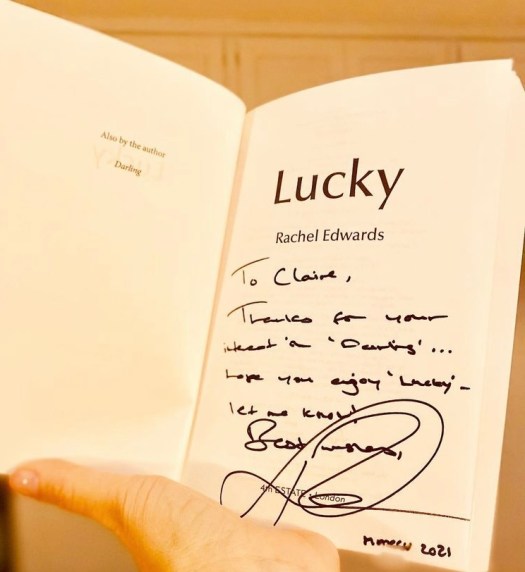 Also by the author
Darling
Lucky
Rachel Edwards
To Claire,
Thanks for your
interest in 'Darling'...
hope you enjoy 'Lucky' -
let me know!
Best wishes,
4th ESTATE • London
2021